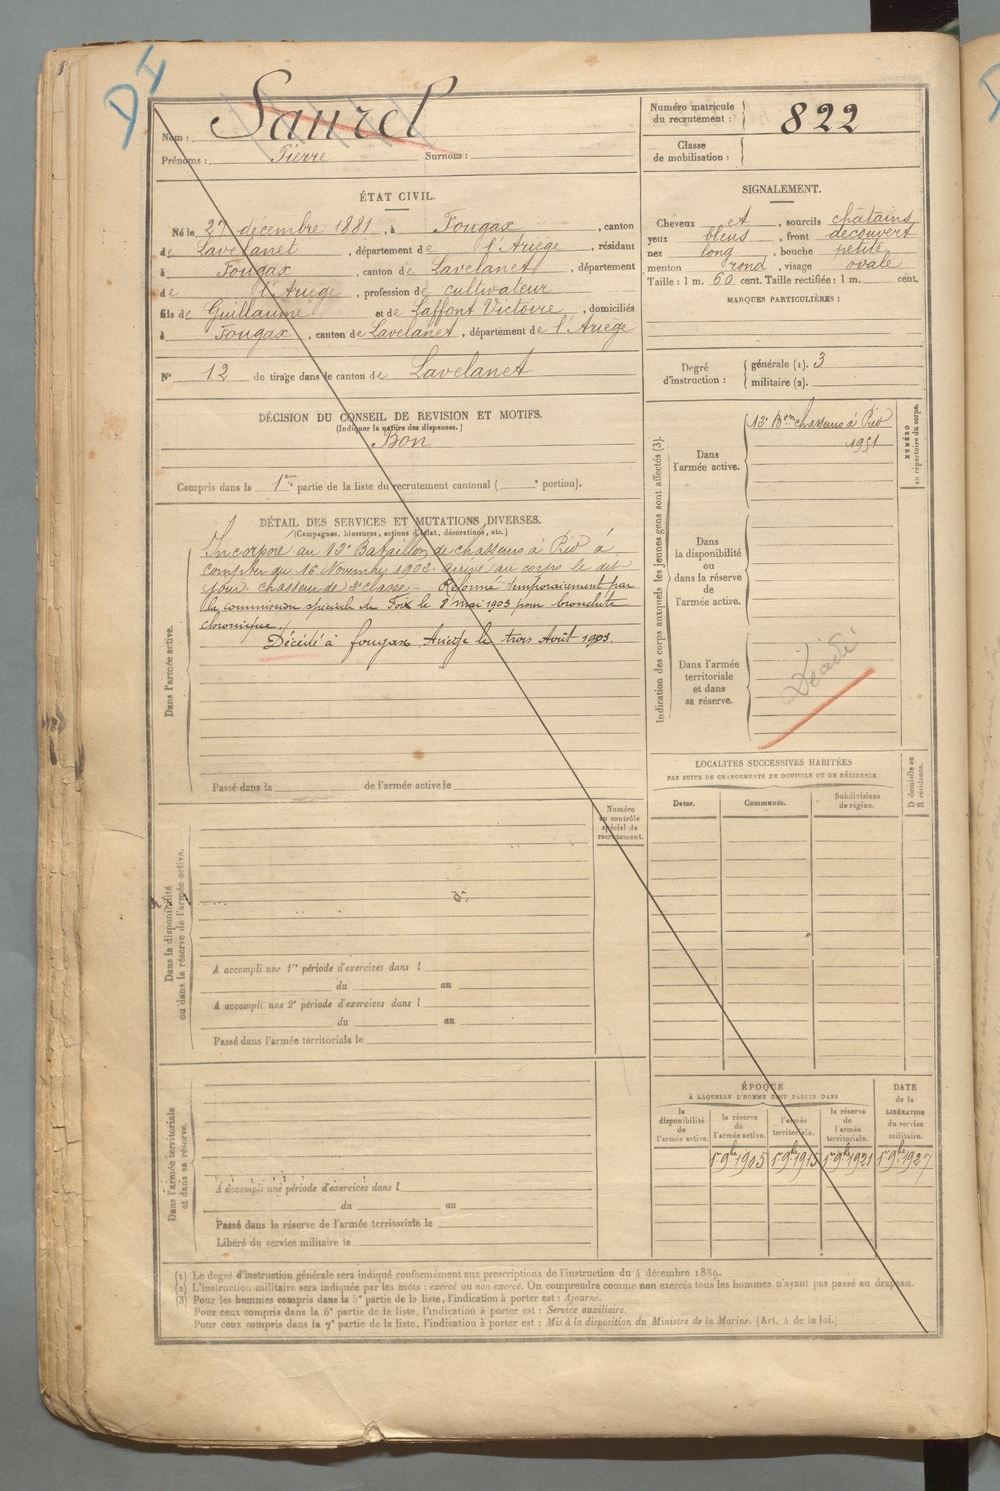 D4
Nom : Saurel
Prénoms : Pierre Surnom :
Numéro matricule du recrutement : 822
Classe de mobilisation :
ÉTAT CIVIL.
Né le 27 décembre 1881, à Fougax, canton
de Lavelanet, département de l'Ariège, résidant
à Fougax, canton de Lavelanet, département
de l'Ariège, profession de cultivateur
fils de Guillaume et de Laffont Victoire, domiciliés
à Fougax, canton de Lavelanet, département de l'Ariège
N° 12 de tirage dans le canton de Lavelanet
SIGNALEMENT.
Cheveux et, sourcils châtains
yeux bleus, front découvert
nez long, bouche petite
menton rond, visage ovale
Taille : 1 m. 60 cent. Taille rectifiée : 1 m. cent.
MARQUES PARTICULIÈRES :
Degré d'instruction : générale (1). 3
militaire (2).
DÉCISION DU CONSEIL DE REVISION ET MOTIFS.
(Indiquer la nature des dispenses.)
Bon
Compris dans la 1re partie de la liste du recrutement cantonal ( e portion).
DÉTAIL DES SERVICES ET MUTATIONS DIVERSES.
(Campagnes, blessures, actions d'éclat, décorations, etc.)
Dans l'armée active.
Incorporé au 12e Bataillon de chasseurs à Pied à
compter du 16 Novembre 1902. arrivé au corps le dit
jour. chasseur de 2e classe. Réformé temporairement par
la commission spéciale de Foix le 8 mai 1903 pour bronchite
chronique.
Décédé à fougax, Ariège le trois Août 1903.
Passé dans la de l'armée active le
Indication des corps auxquels les jeunes gens sont affectés (3).
NUMÉRO au répertoire du corps.
Dans l'armée active.
12e Bon chasseurs à Pied
1951
Dans la disponibilité ou dans la réserve de l'armée active.
Dans l'armée territoriale et dans sa réserve.
Décédé
LOCALITES SUCCESSIVES HABITÉES
PAR SUITE DE CHANGEMENTS DE DOMICILE OU DE RÉSIDENCE.
D domicile ou R résidence.
Dates. Communes. Subdivisions de région.
Numéro au contrôle spécial du recrutement.
Dans la disponibilité ou dans la réserve de l'armée active.
A accompli une 1re période d'exercices dans l
du au
A accompli une 2e période d'exercices dans l
du au
Passé dans l'armée territoriale le
Dans l'armée territoriale et dans sa réserve.
A accompli une période d'exercices dans l
du au
Passé dans la réserve de l'armée territoriale le
Libéré du service militaire le
ÉPOQUE
À LAQUELLE L'HOMME DOIT PASSER DANS
la disponibilité de l'armée active.
la réserve de l'armée active.
l'armée territoriale.
la réserve de l'armée territoriale.
DATE de la LIBÉRATION du service militaire.
1er 9bre 1905 1er 9bre 1915 1er 9bre 1921 1er 9bre 1927
(1) Le degré d'instruction générale sera indiqué conformément aux prescriptions de l'instruction du 4 décembre 1889.
(2) L'instruction militaire sera indiquée par les mots : exercé ou non exercé. On comprendra comme non exercés tous les hommes n'ayant pas passé au drapeau.
(3) Pour les hommes compris dans la 5e partie de la liste, l'indication à porter est : Ajourné.
Pour ceux compris dans la 6e partie de la liste, l'indication à porter est : Service auxiliaire.
Pour ceux compris dans la 7e partie de la liste, l'indication à porter est : Mis à la disposition du Ministre de la Marine. (Art. 4 de la loi.)